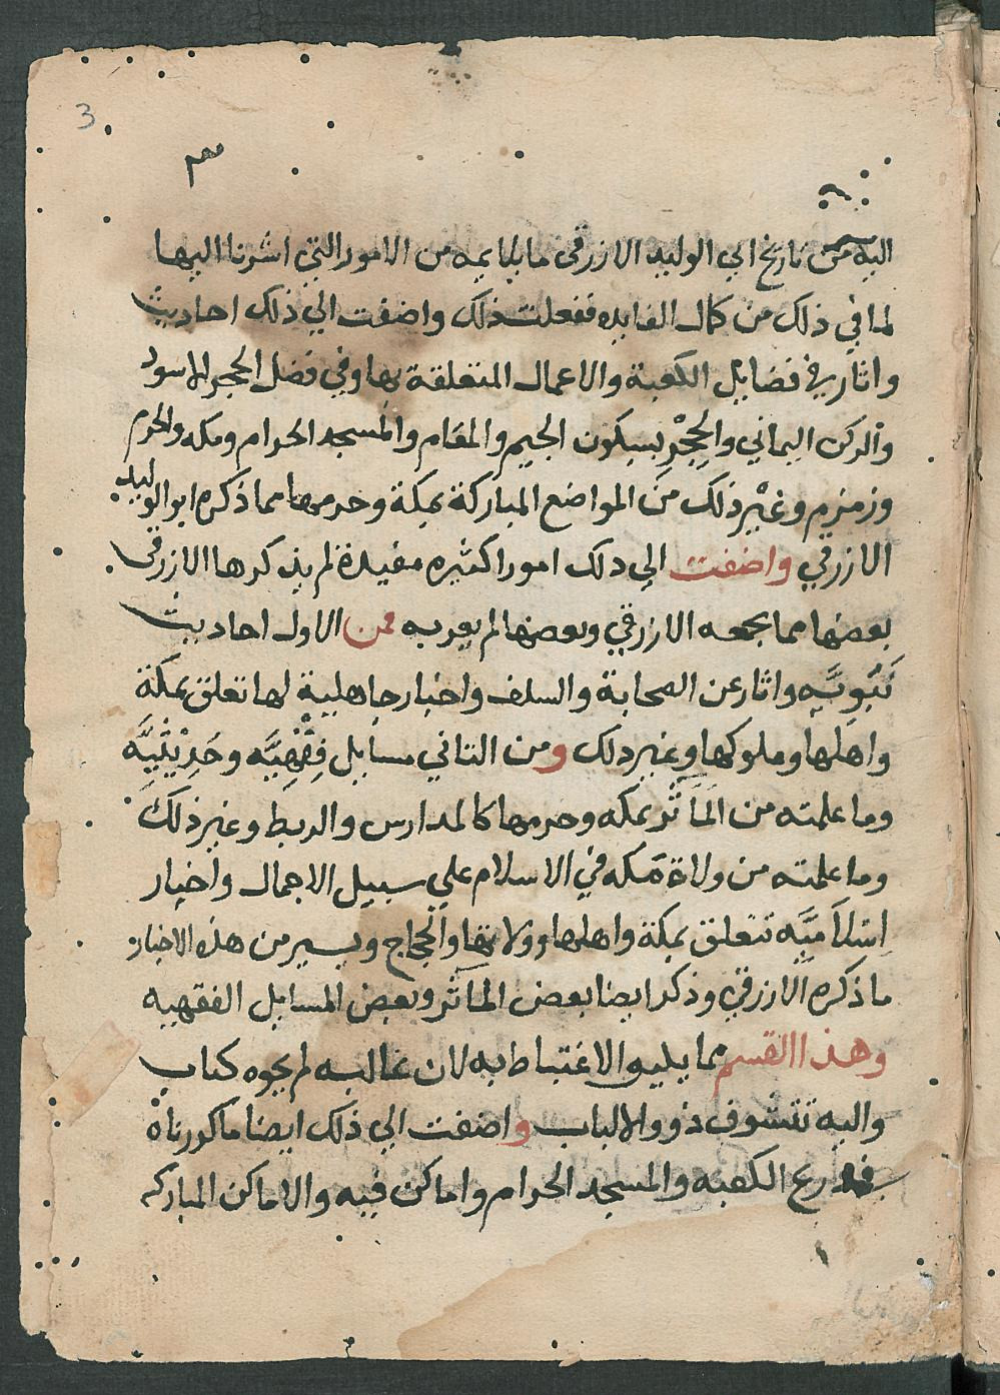 3
٣
اليه من تاريخ ابي الوليد الازرقي ما يلايمه من الامور التي اشرنا اليها
لما في ذلك من كمال الفايده ففعلت ذلك واضفت الي ذلك احاديث
واثار في فضايل الكعبة والاعمال المتعلقة بها وفي فضل الحجر الاسود
والركن اليماني والحِجْر بسكون الجيم والمقام والمسجد الحرام ومكه والحرم
وزمزم وغير ذلك من المواضع المباركة بمكة وحرمها مما ذكره ابو الوليد
الازرقي واضفت الي ذلك امورا كثيره مفيدة لم يذكرها الازرقي
بعضها مما يجمعه الازرقي وبعضها لم يعربه فمن الاول احاديث
نَبَويَّه واثار عن الصحابة والسلف واخبار جاهلية لها تعلق بمكة
واهلها وملوكها وغير ذلك ومن الثاني مسايل فِقْهِيَّه وحَدِيْثِيَّه
وما علمته من المآثر بمكه وحرمها كالمدارس والربط وغير ذلك
وما علمته من ولاة مكه في الاسلام علي سبيل الاجمال واخبار
اسلاميَّه تتعلق بمكة واهلها وولاتها والحجاج ويسير من هذه الاخبار
ما ذكره الازرقي وذكر ايضا بعض المآثر وبعض المسايل الفقهيه
وهذا القسم مما يليق الاغتباط به لان غالبه لم يحوه كتاب
واليه تتشوف ذوو الالباب واضفت الي ذلك ايضا ما حررناه
في ذرع الكعبه والمسجد الحرام واماكن فيه والاماكن المباركه